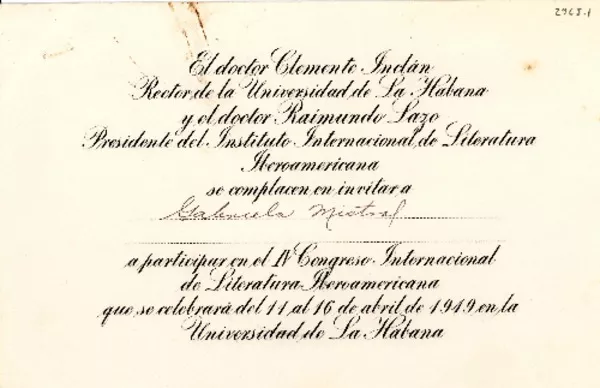 2965.1
El doctor Clemente Inclán
Rector de la Universidad de La Habana
y el doctor Raimundo Lazo
Presidente del Instituto Internacional de Literatura
Iberoamericana
se complacen en invitar a
Gabriela Mistral
a participar en el IV Congreso Internacional
de Literatura Iberoamericana
que se celebrará del 11 al 16 de abril de 1949 en la
Universidad de La Habana